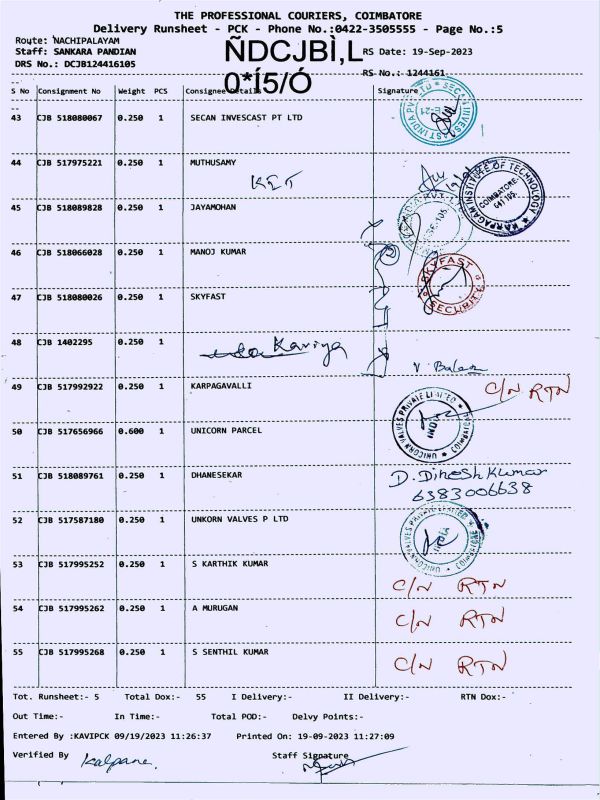 THE PROFESSIONAL COURIERS, COIMBATORE
Delivery Runsheet - PCK - Phone No.:0422-3505555 - Page No.:5
Route: NACHIPALAYAM
Staff: SANKARA PANDIAN ÑDCJBÌ,L RS Date: 19-Sep-2023
DRS No.: DCJB124416105 0*Í5/Ó RS No.: 1244161
S No Consignment No Weight PCS Consignee Details Signature
43 CJB 518080067 0.250 1 SECAN INVESCAST PT LTD
SECAN INVESCAST INDIA PVT LTD
44 CJB 517975221 0.250 1 MUTHUSAMY
KARPAGAM INSTITUTE OF TECHNOLOGY
COIMBATORE-
641 105.
45 CJB 518089828 0.250 1 JAYAMOHAN
46 CJB 518066028 0.250 1 MANOJ KUMAR
47 CJB 518080026 0.250 1 SKYFAST
SKYFAST SECURITY
48 CJB 1402295 0.250 1 Kaviya
49 CJB 517992922 0.250 1 KARPAGAVALLI C/N RTN
50 CJB 517656966 0.600 1 UNICORN PARCEL
UNICORN VALVES PRIVATE LIMITED COIMBATORE
INDIA
51 CJB 518089761 0.250 1 DHANESEKAR D. Dinesh Kumar
6383006638
52 CJB 517587180 0.250 1 UNKORN VALVES P LTD
53 CJB 517995252 0.250 1 S KARTHIK KUMAR C/N RTN
54 CJB 517995262 0.250 1 A MURUGAN C/N RTN
55 CJB 517995268 0.250 1 S SENTHIL KUMAR C/N RTN
Tot. Runsheet:- 5 Total Dox:- 55 I Delivery:- II Delivery:- RTN Dox:-
Out Time:- In Time:- Total POD:- Delvy Points:-
Entered By :KAVIPCK 09/19/2023 11:26:37 Printed On: 19-09-2023 11:27:09
Verified By Kalpana. Staff Signature